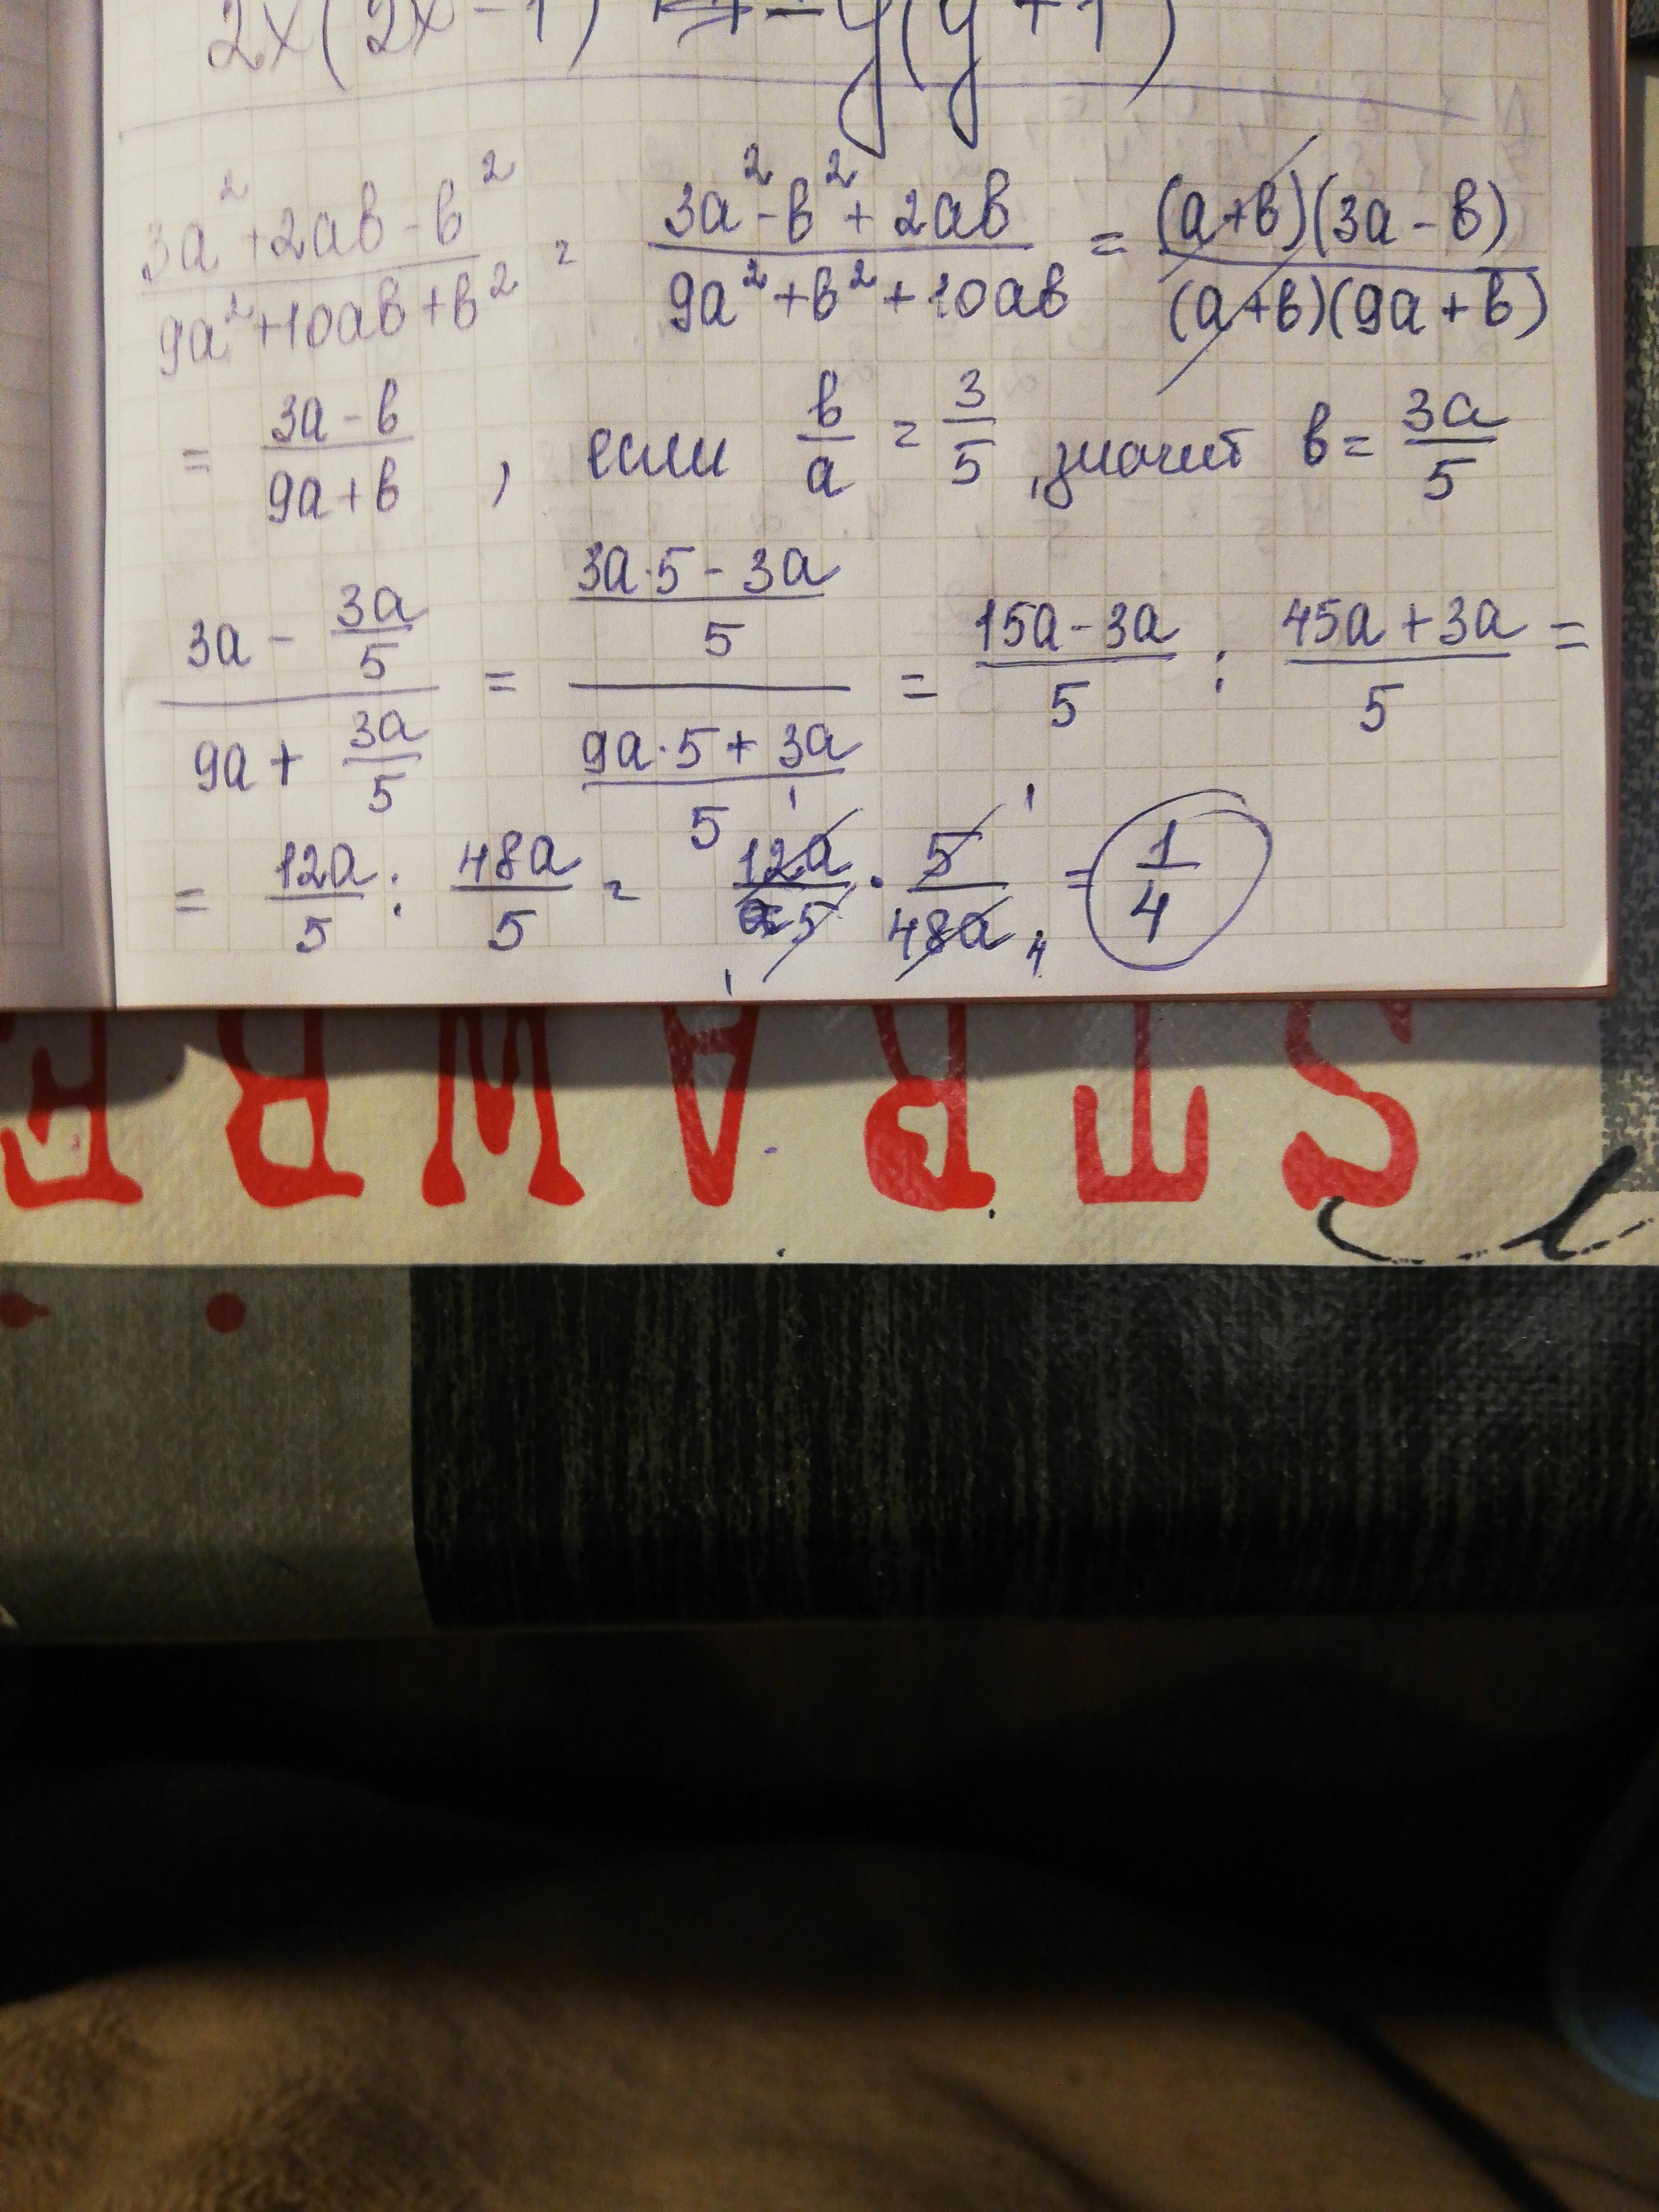 2x(2x-1) = -y(y+1)
3a²+2ab-b² / 9a²+10ab+b² = 3a²-b²+2ab / 9a²+b²+10ab = (a+b)(3a-b) / (a+b)(9a+b)
= 3a-b / 9a+b , если b/a = 3/5 , значит b = 3a/5
3a - 3a/5 / 9a + 3a/5 = 3a·5-3a / 5 / 9a·5+3a / 5 = 15a-3a / 5 : 45a+3a / 5 =
= 12a/5 : 48a/5 = 12a/5 · 5/48a = 1/4
STRAWBE